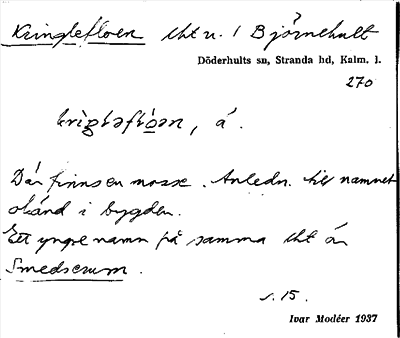 Kringlefloen lht u. / Björnhult
Döderhults sn, Stranda hd, Kalm. l.
270
, á.
Där finns en mosse. Anledn. till namnet
okänd i bygden.
Ett yngre namn på samma lht är
Smedserum.
s. 15.
Ivar Modéer 1937